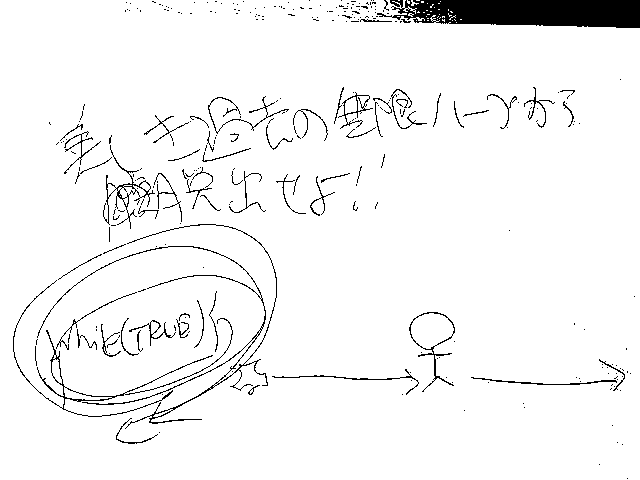 美しき過去の無限ループから
脱出せよ!!
while(TRUE){}